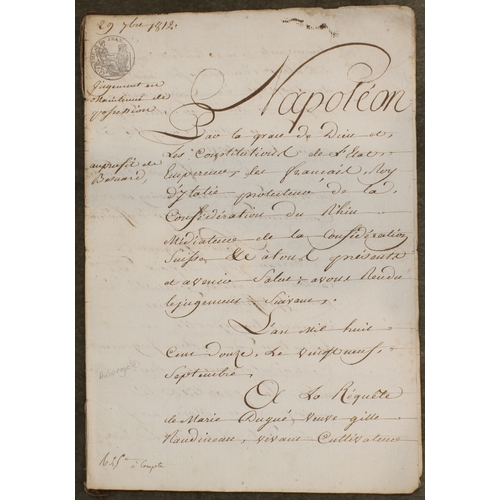 29 7bre 1812.
Jugement en
Maintenue de
possession
au profit de
Benard,
Napoléon
Par la grace de Dieu et
Les Constitutions de l'Etat
Empereur, des français, Roy
d'Italie protecteur de la
Confédération du Rhin
Médiateur de la Confédération
Suisse, & à tous présents
et avenir Salut, avons Rendu
le jugement Suivant.
L'an Mil huit
Cent Douze, Le vingt neuf
Septembre,
A La Réquête
de Marie Dugué, veuve gille
Naudineau, vivant Cultivateur
à Compte